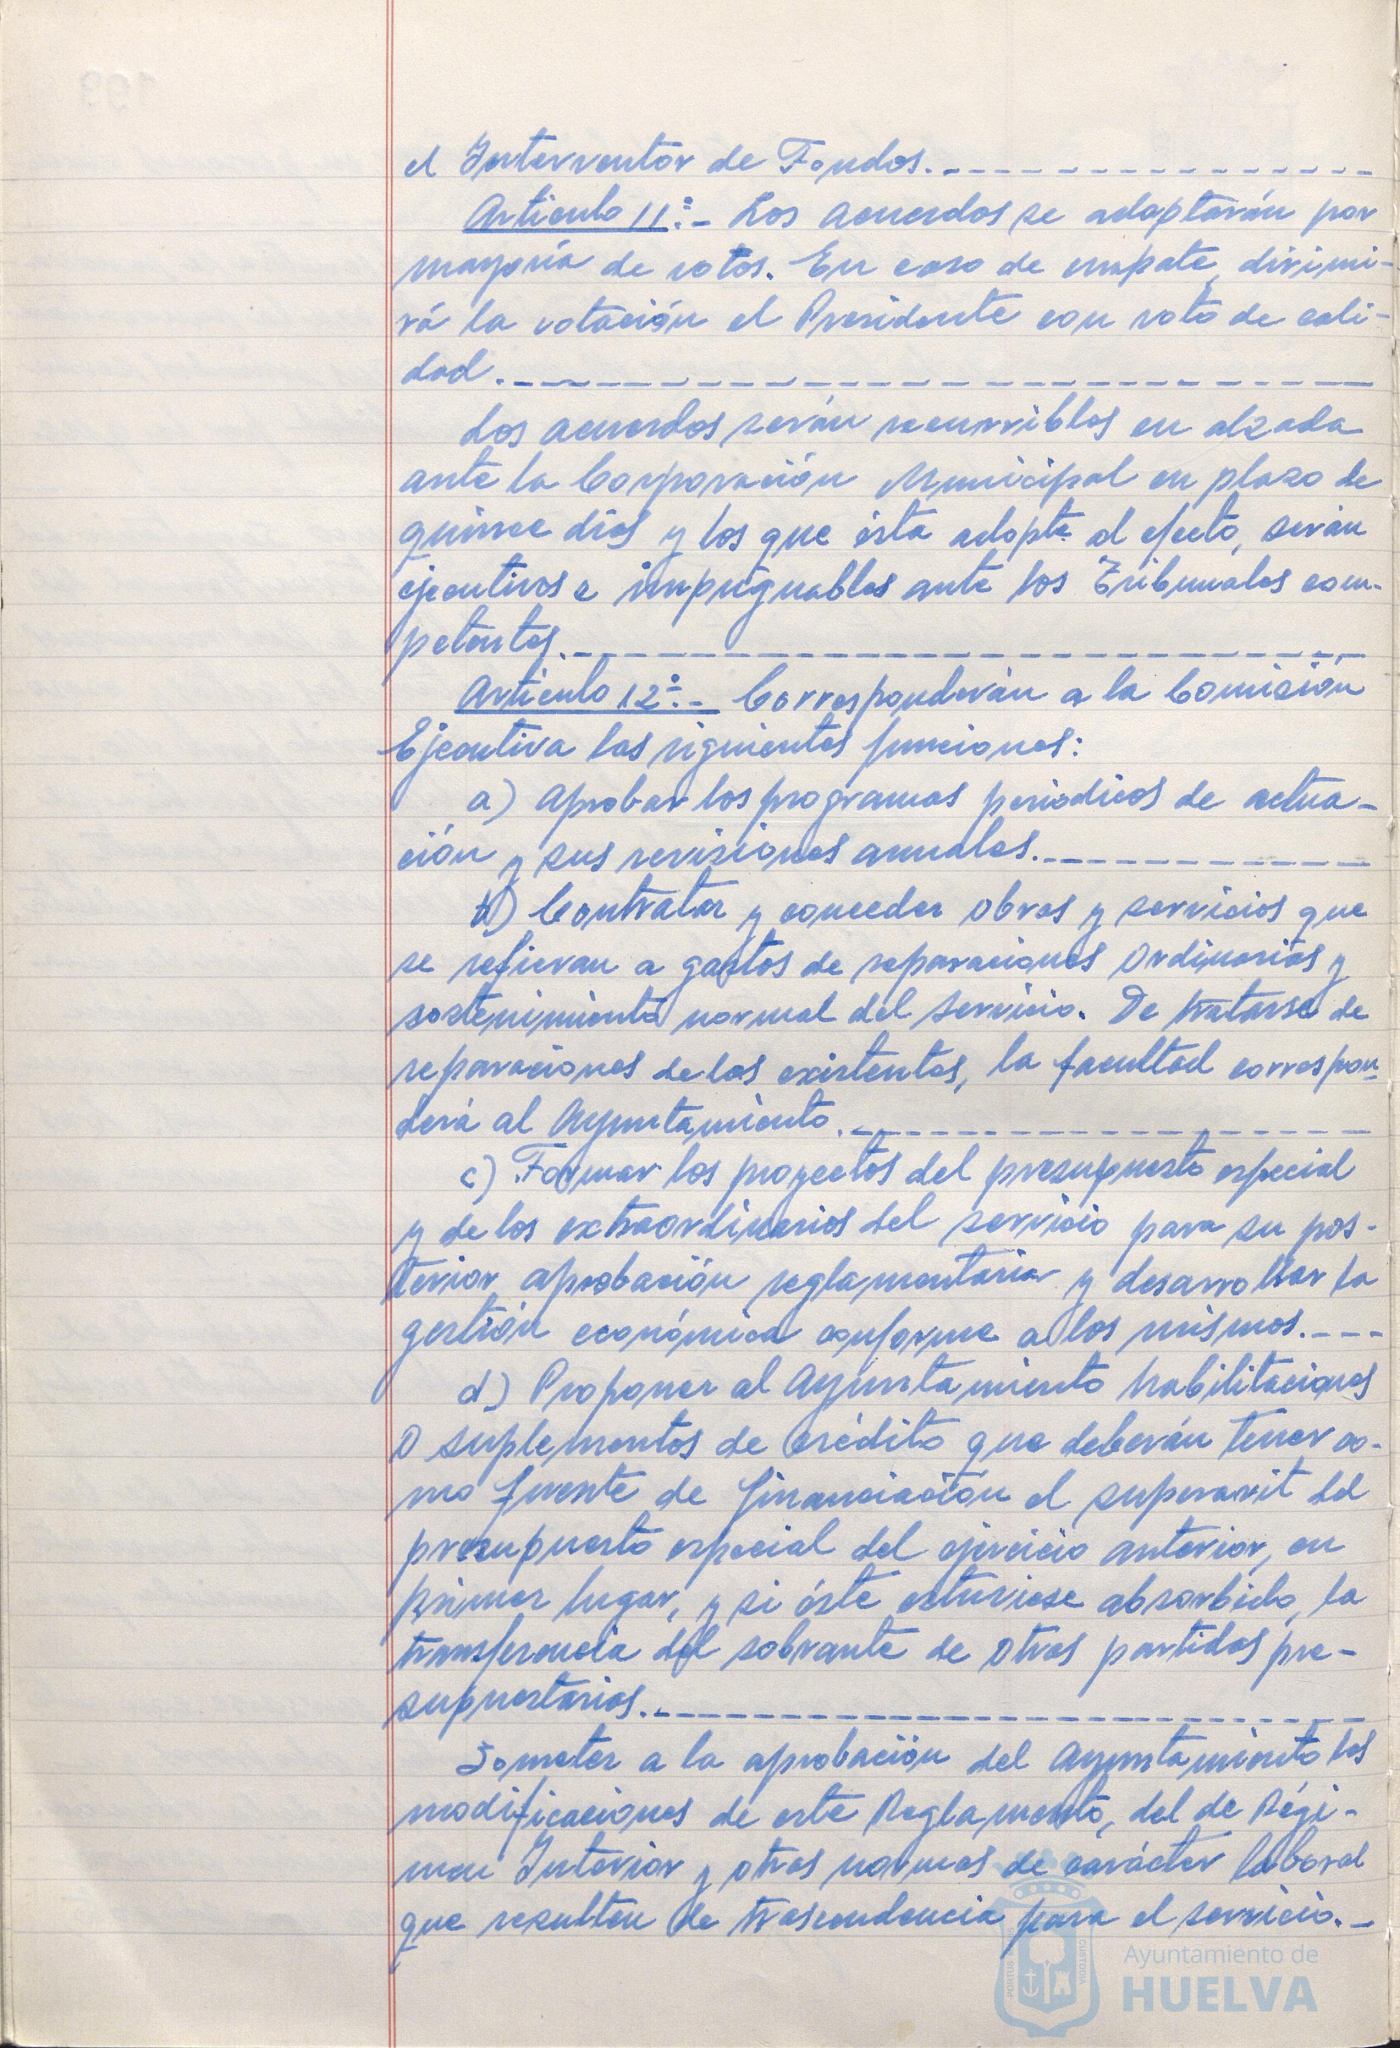 el Interventor de Fondos.
Artículo 11º.- Los acuerdos se adoptarán por
mayoría de votos. En caso de empate, dirimi-
rá la votación el Presidente con voto de cali-
dad.
Los acuerdos serán recurribles en alzada
ante la Corporación Municipal en plazo de
quince días y los que ésta adopte al efecto, serán
ejecutivos e impugnables ante los Tribunales com-
petentes.
Artículo 12º.- Corresponderán a la Comisión
Ejecutiva las siguientes funciones:
a) Aprobar los programas periódicos de actua-
ción y sus revisiones anuales.
b) Contratar y conceder obras y servicios que
se refieran a gastos de reparaciones ordinarias y
sostenimiento normal del servicio. De tratarse de
reparaciones de las existentes, la facultad correspon-
derá al Ayuntamiento.
c) Formar los proyectos del presupuesto especial
y de los extraordinarios del servicio para su pos-
terior aprobación reglamentaria y desarrollar la
gestión económica conforme a los mismos.
d) Proponer al Ayuntamiento habilitaciones
o suplementos de crédito que deberán tener co-
mo fuente de financiación el superavit del
presupuesto especial del ejercicio anterior, en
primer lugar, y si éste estuviese absorbido, la
transferencia del sobrante de otras partidas pre-
supuestarias.
Someter a la aprobación del Ayuntamiento las
modificaciones de este Reglamento, del de Régi-
men Interior y otras normas de carácter laboral
que resulten de trascendencia para el servicio.-
Ayuntamiento de
HUELVA